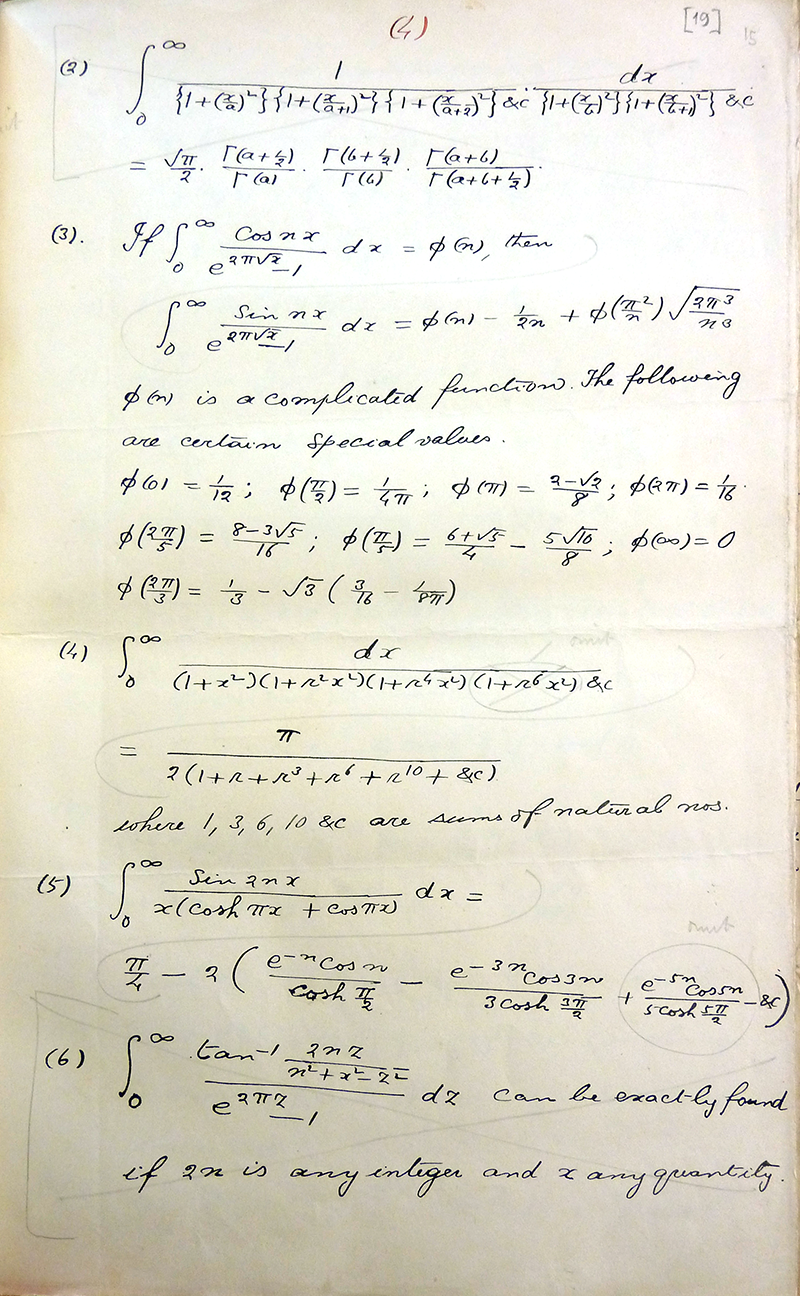 (4) [19] 15
(2) ∫₀^∞ 1/({1+(x/a)²}{1+(x/(a+1))²}{1+(x/(a+2))²}&c) · dx/({1+(x/b)²}{1+(x/(b+1))²}&c)
= √π/2 · Γ(a+½)/Γ(a) · Γ(b+½)/Γ(b) · Γ(a+b)/Γ(a+b+½).
(3). If ∫₀^∞ Cos nx/(e^(2π√x)−1) dx = φ(n), then
∫₀^∞ Sin nx/(e^(2π√x)−1) dx = φ(n) − 1/2n + φ(π²/n) √(2π³/n³)
φ(n) is a complicated function. The following
are certain special values.
φ(0) = 1/12; φ(π/2) = 1/4π; φ(π) = (2−√2)/8; φ(2π) = 1/16.
φ(2π/5) = (8−3√5)/16; φ(π/5) = (6+√5)/4 − 5√10/8; φ(∞) = 0
φ(2π/3) = 1/3 − √3 (3/16 − 1/8π)
omit
(4) ∫₀^∞ dx/((1+x²)(1+r²x²)(1+r⁴x²)(1+r⁶x²)&c)
= π/(2(1+r+r³+r⁶+r¹⁰+&c))
where 1, 3, 6, 10 &c are sums of natural nos.
(5) ∫₀^∞ Sin 2nx/(x(cosh πx + cos πx)) dx =
omit
π/4 − 2 (e⁻ⁿ cos n/cosh π/2 − e⁻³ⁿ cos 3n/3 cosh 3π/2 + e⁻⁵ⁿ cos 5n/5 cosh 5π/2 − &c)
(6) ∫₀^∞ tan⁻¹ (2nz/(n²+x²−z²))/(e^(2πz)−1) dz can be exactly found
if 2n is any integer and x any quantity.